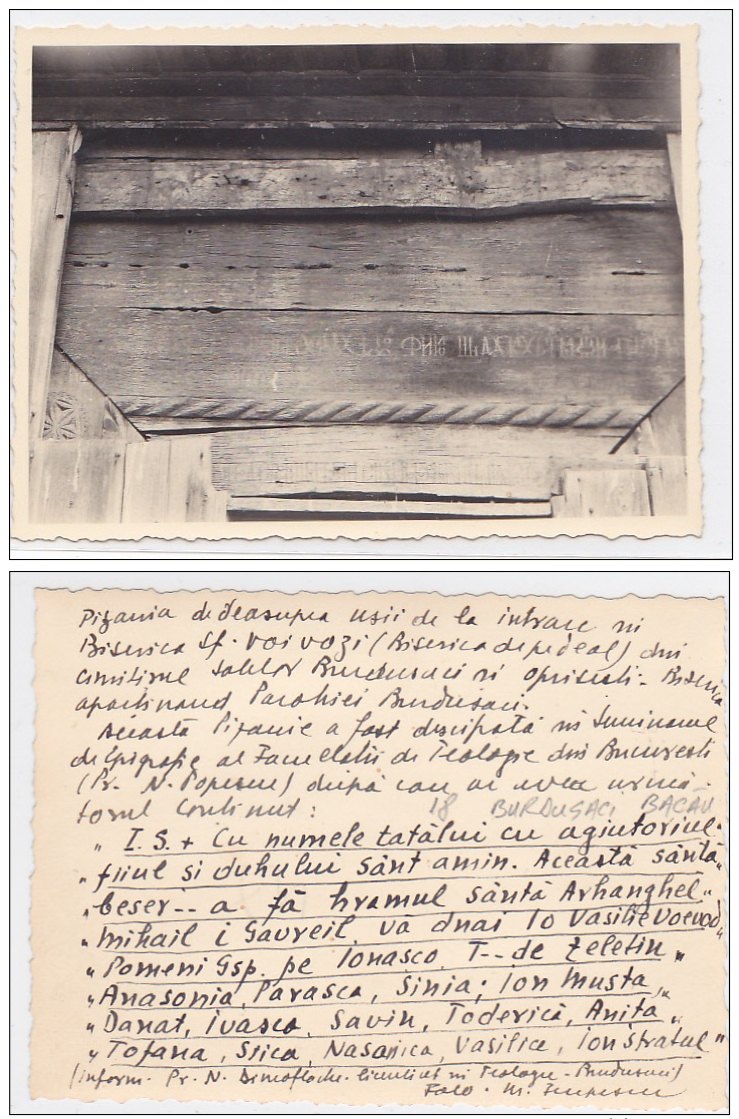 Pisania dedeasupra usii de la intrare in
Biserica Sf. Voivozi (Biserica depe deal) din
cimitirul satelor Burdusaci si Oprisesti - Biserica
apartinand Parohiei Burdusaci.
Această Pisanie a fost descifrată in Seminarul
de Epigrafie al Facultatii de Teologie din Bucuresti
(Pr. N. Popescu) după care ar avea urmă-
torul continut:
18 BURDUSACI BACAU
" I. S. + Cu numele tatălui cu agiutoriul "
" fiiul si duhului sânt amin. Această sântă "
" beser-- a fă hramul sântă Arhanghel "
" Mihail i Gavreil vă dnai Io Vasilie Voevod "
" Pomeni Gsp. pe Ionasco, T-- de Zeletin "
" Anasonia, Parasca, Sinia; Ion Musta "
" Danat, Ivasca, Savin, Toderică, Anita "
" Tofana, Stica, Nasanica, Vasilica, Ion Stratul "
(inform. Pr. N. licentiat in Teologie - Burdusaci)
Foto. M.